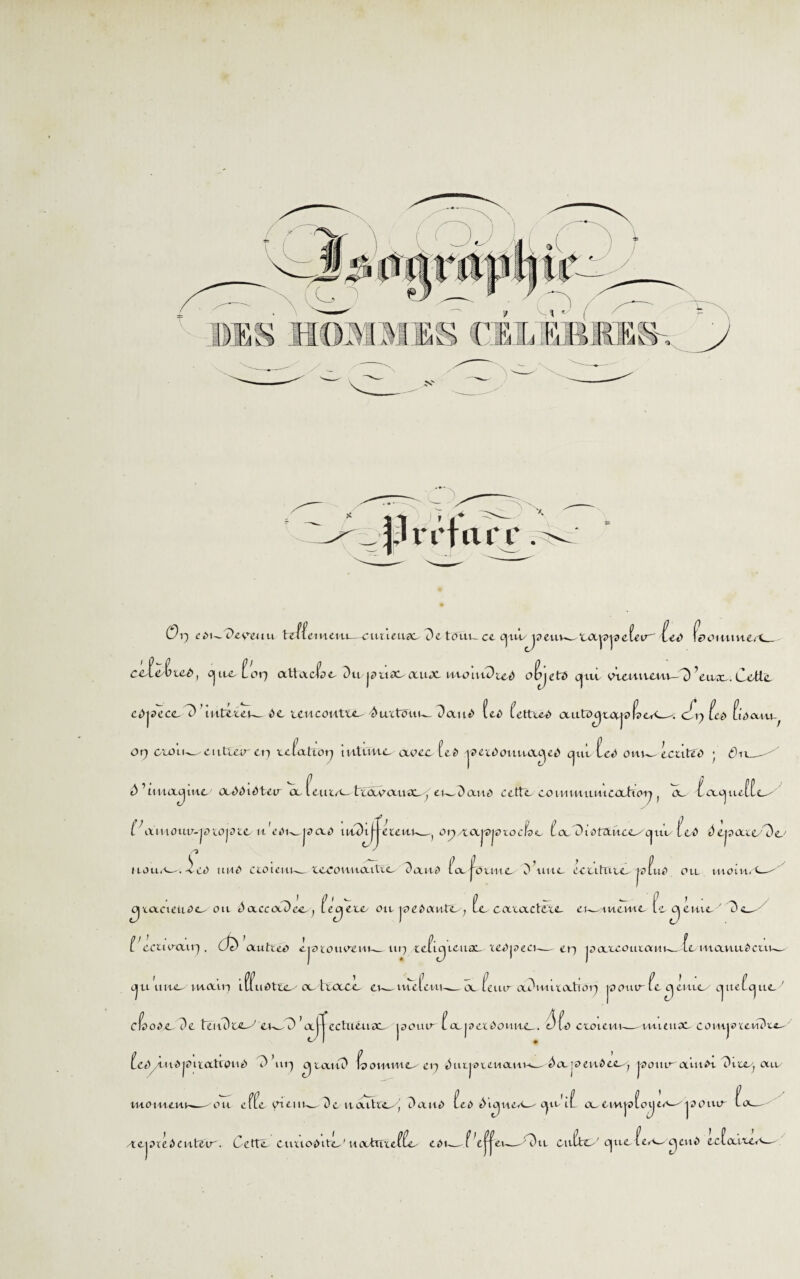 Isographie
DES HOMMES CÉLÈBRES.
Préface.
On est devenu tellement curieux de tout ce qui peut rappeler les hommes
célèbres, que l'on attache du prix aux moindres objets qui viennent d'eux. Cette
espèce d'intérêt se rencontre surtout dans les lettres autographes. En les lisant,
on croit entrer en relation intime avec les personnages qui les ont écrites ; On
s'imagine assister à leurs travaux, et dans cette communication, à laquelle
l'amour-propre n'est pas indifférent, on rapproche la distance qui les sépare de
nous. Les uns croient reconnaître dans la forme d'une écriture plus ou moins
gracieuse ou saccadée, légère ou pesante, le caractère et même le génie de
l'écrivain. D'autres éprouvent un religieux respect en parcourant le manuscrit
qu'une main illustre a tracé et mêlent à leur admiration pour le génie quelque
chose de tendre et d'affectueux pour la personne. Ils croient mieux comprendre
les inspirations d'un grand homme en surprenant sa pensée, pour ainsi dire, au
moment où elle vient de naître, dans les signes qu'il a employés pour la
représenter. Cette curiosité naturelle est l'effet du culte que les gens éclairés